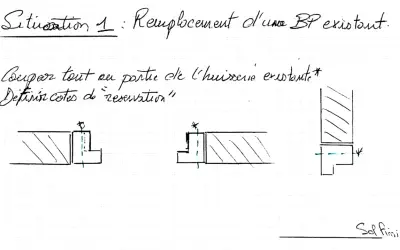 Situation 1 : Remplacement d'un BP existant.
Couper tout ou partie de l'huisserie existante *
Définir cotes de "reservation"
* * *
Sol fini